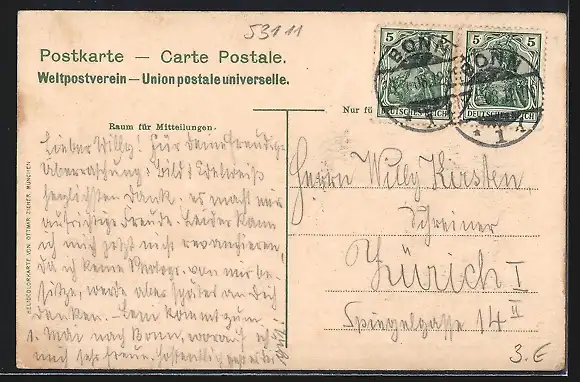 53111
Postkarte — Carte Postale.
Weltpostverein — Union postale universelle.
5
5
BONN
BONN
DEUTSCHES REICH
DEUTSCHES REICH
Nur fü
Raum für Mitteilungen.
Lieber Willy! Für Deine freudige
Überraschung: Bild & Edelweiß
herzlichsten Dank, es macht mir
aufrichtige Freude. Leider kann
ich mich jetzt nicht revangieren,
da ich keine Photogr. von mir be-
sitze, werde aber später an Dich
denken. – kommt zum
1. Mai nach Bonn, worauf ich
mich sehr freue. Hoffentlich
Herrn Willy Kersten,
Schreiner
Zürich I
Spiegelgasse 14 II
3.€
HELIOCOLORKARTE VON OTTMAR ZIEHER, MÜNCHEN